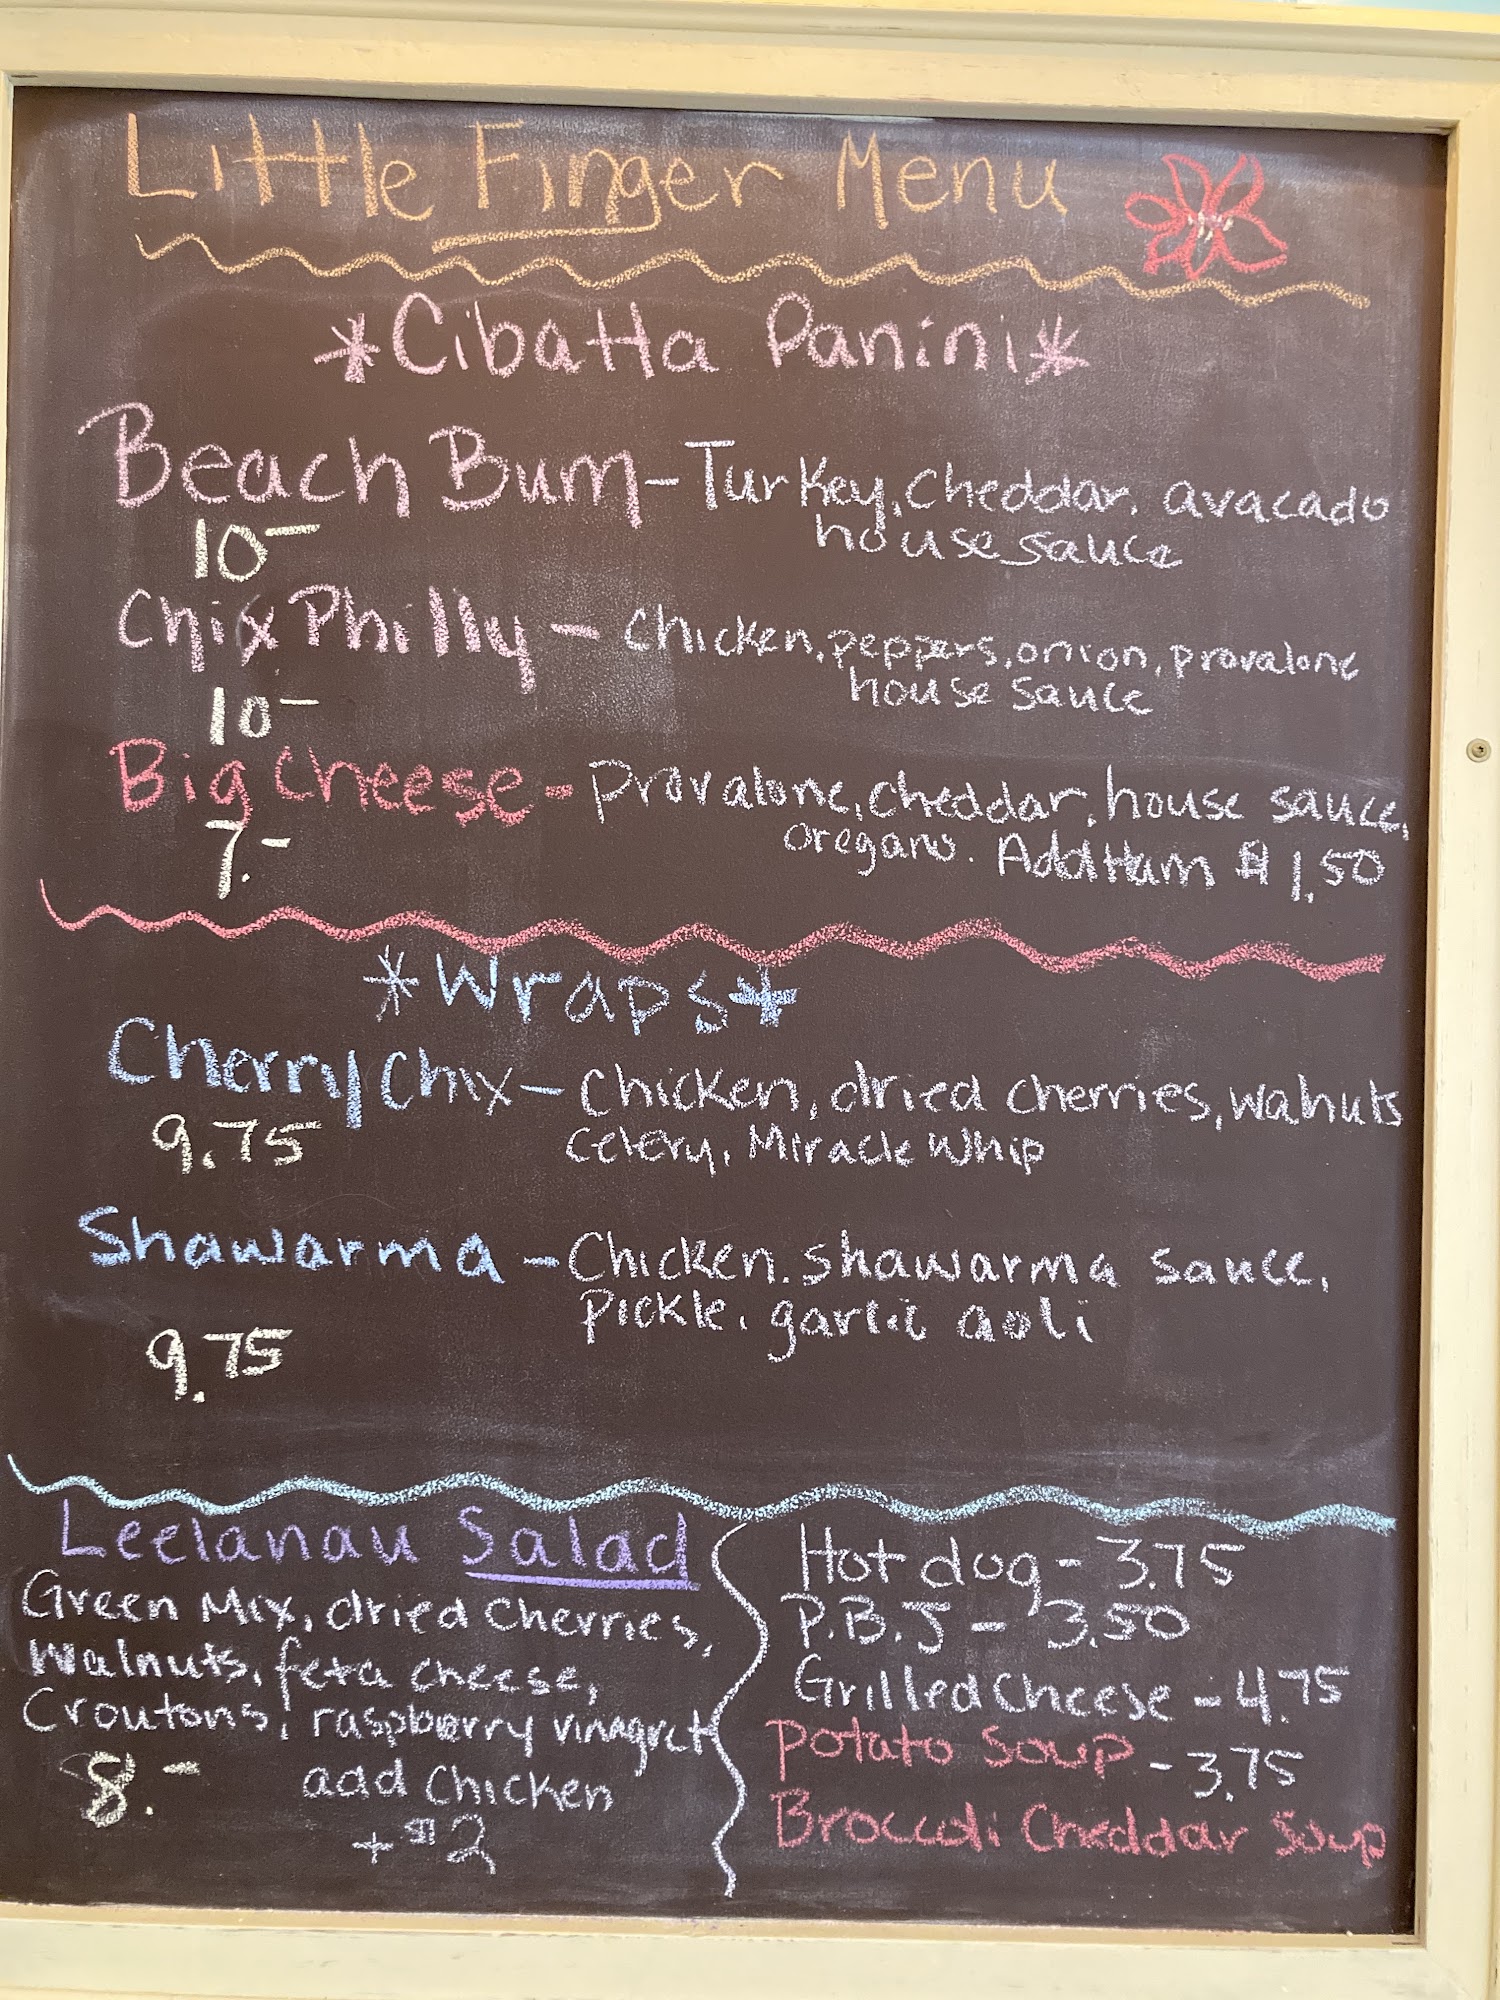 Little Finger Menu
*Cibatta Panini*
Beach Bum - Turkey, cheddar, avacado
house sauce
10-
Chix Philly - Chicken, peppers, onion, provalone
house sauce
10-
Big Cheese - Provalone, cheddar, house sauce,
oregano. Add Ham $1.50
7.-
*Wraps*
Cherry Chix - Chicken, dried cherries, walnuts
Celery, Miracle Whip
9.75
Shawarma - Chicken. shawarma sauce,
Pickle, garlic aoli
9.75
Leelanau Salad
Green Mix, dried cherries,
Walnuts, feta cheese,
Croutons, raspberry vinagret
8.-
add Chicken
+ $2
Hot dog - 3.75
P.B.J - 3.50
Grilled Cheese - 4.75
Potato Soup - 3.75
Broccoli Cheddar Soup